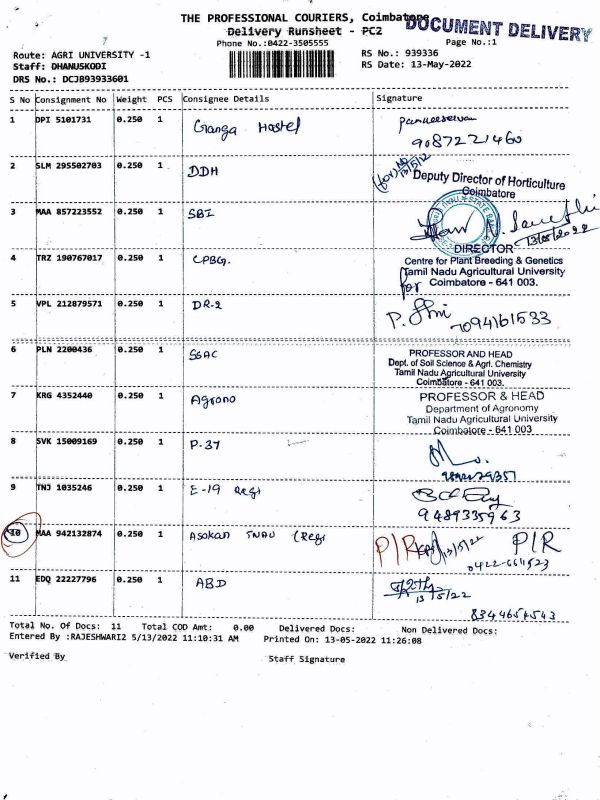 THE PROFESSIONAL COURIERS, Coimbatore
DOCUMENT DELIVERY
Delivery Runsheet - PC2
Phone No.:0422-3505555
Page No.:1
Route: AGRI UNIVERSITY -1
RS No.: 939336
Staff: DHANUSKODI
RS Date: 13-May-2022
DRS No.: DCJB93933601
S No Consignment No Weight PCS Consignee Details Signature
1 DPI 5101731 0.250 1 Ganga Hostel
9087221460
2 SLM 295502703 0.250 1 DDH
(for) 13/5/12
Deputy Director of Horticulture
Coimbatore
3 MAA 857223552 0.250 1 SBI
13/05/2022
DIRECTOR
4 TRZ 190767017 0.250 1 CPBG.
Centre for Plant Breeding & Genetics
Tamil Nadu Agricultural University
for Coimbatore - 641 003.
5 VPL 212879571 0.250 1 DR-2
7094161533
6 PLN 2200436 0.250 1 SSAC
PROFESSOR AND HEAD
Dept. of Soil Science & Agrl. Chemistry
Tamil Nadu Agricultural University
Coimbatore - 641 003.
7 KRG 4352440 0.250 1 Agrono
PROFESSOR & HEAD
Department of Agronomy
Tamil Nadu Agricultural University
Coimbatore - 641 003
8 SVK 15009169 0.250 1 P-37
9 TNJ 1035246 0.250 1 E-19 Regi
9489335963
10 MAA 942132874 0.250 1 Asokan TNAU (Regi
P/R 13/5/22 P/R
11 EDQ 22227796 0.250 1 ABD
13/5/22
8344654543
Total No. Of Docs: 11 Total COD Amt: 0.00 Delivered Docs: Non Delivered Docs:
Entered By :RAJESHWARI2 5/13/2022 11:10:31 AM Printed On: 13-05-2022 11:26:08
Verified By Staff Signature